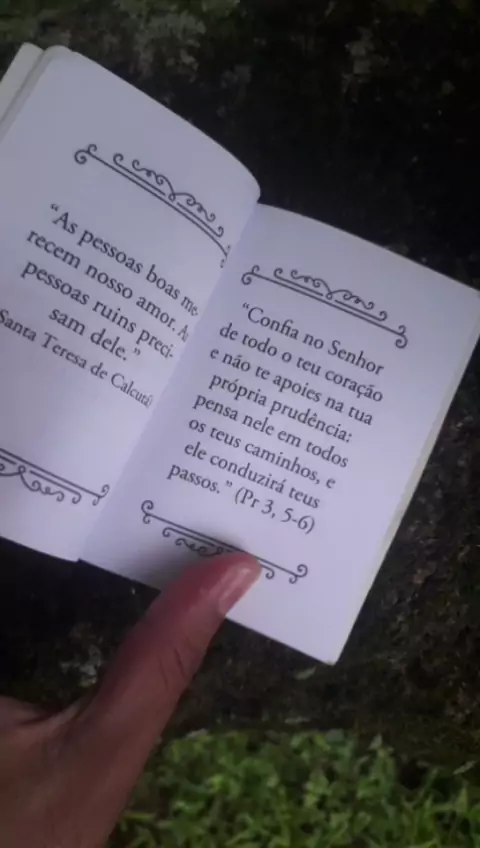 “As pessoas boas me-
recem nosso amor. As
pessoas ruins preci-
sam dele.”
Santa Teresa de Calcutá)
“Confia no Senhor
de todo o teu coração
e não te apoies na tua
própria prudência:
pensa nele em todos
os teus caminhos, e
ele conduzirá teus
passos.” (Pr 3, 5-6)